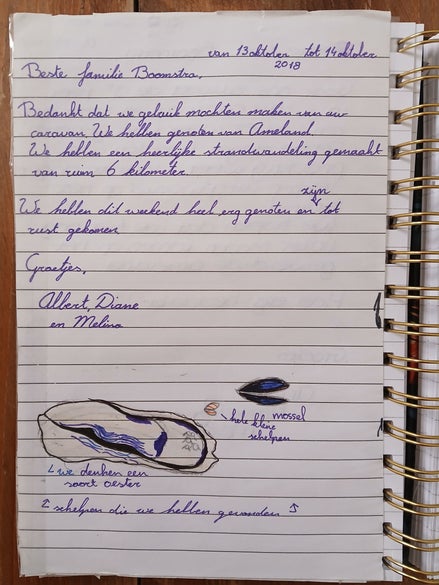 van 13 oktober tot 14 oktober
2018
Beste familie Boomstra,
Bedankt dat we gebruik mochten maken van uw
caravan. We hebben genoten van Ameland.
We hebben een heerlijke strandwandeling gemaakt
van ruim 6 kilometer.
zijn
We hebben dit weekend heel erg genoten en tot
rust gekomen
Groetjes,
Albert, Diane
en Melina
mossel
hele kleine
schelpen
we denken een
soort oester
schelpen die we hebben gevonden